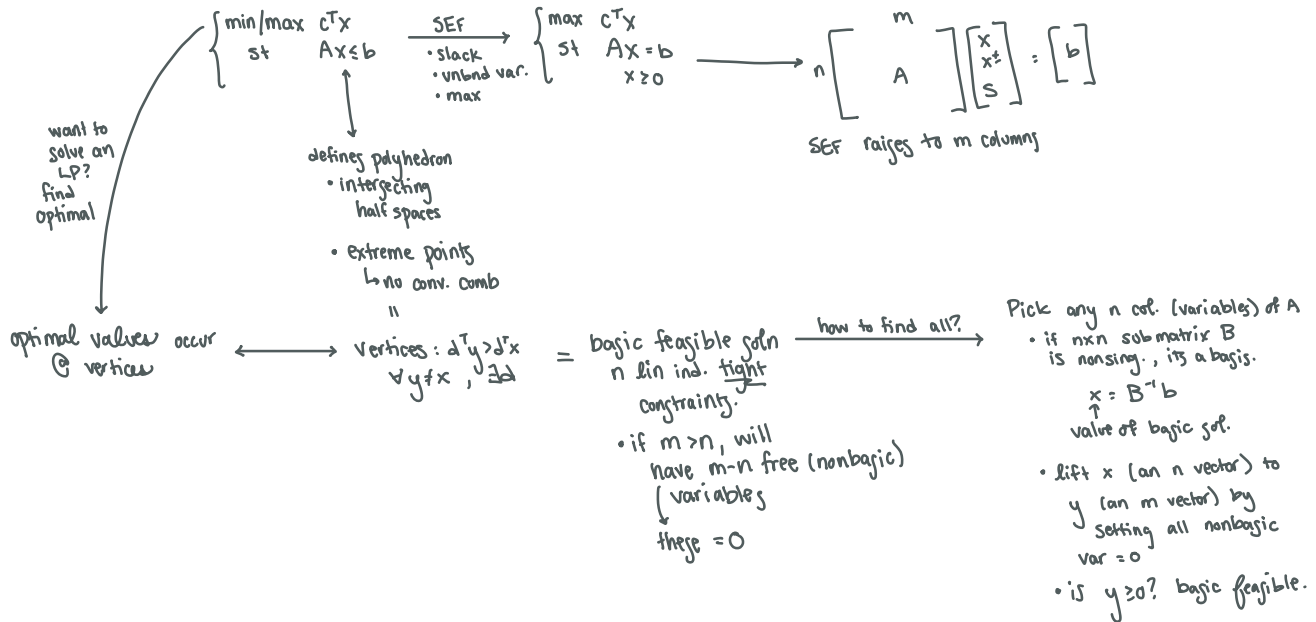 min/max cᵀx
st Ax≤b
SEF
• slack
• unbnd var.
• max
max cᵀx
st Ax=b
x≥0
m
n
A
x
x±
s
=
b
SEF raises to m columns
want to
solve an
LP?
find
optimal
defines polyhedron
• intersecting
half spaces
• extreme points
↳ no conv. comb
=
optimal values occur
@ vertices
vertices: dᵀy>dᵀx
∀y≠x, ∃d
=
basic feasible soln
n lin ind. tight
constraints.
• if m>n, will
have m-n free (nonbasic)
variables
these =0
how to find all?
Pick any n col. (variables) of A
• if n×n submatrix B
is nonsing., its a basis.
x = B⁻¹b
↑
value of basic sol.
• lift x (an n vector) to
y (an m vector) by
setting all nonbasic
var =0
• is y≥0? basic feasible.